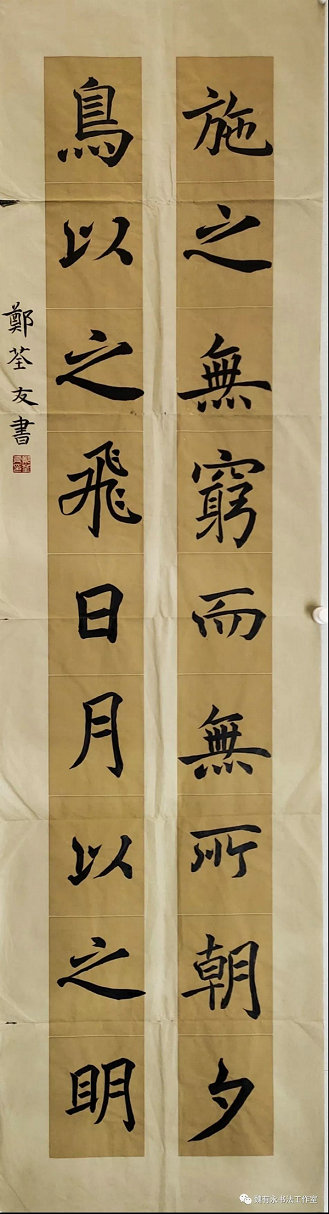 施之無窮而無所朝夕
鳥以之飛日月以之明
鄭荃友書
魏有永书法工作室